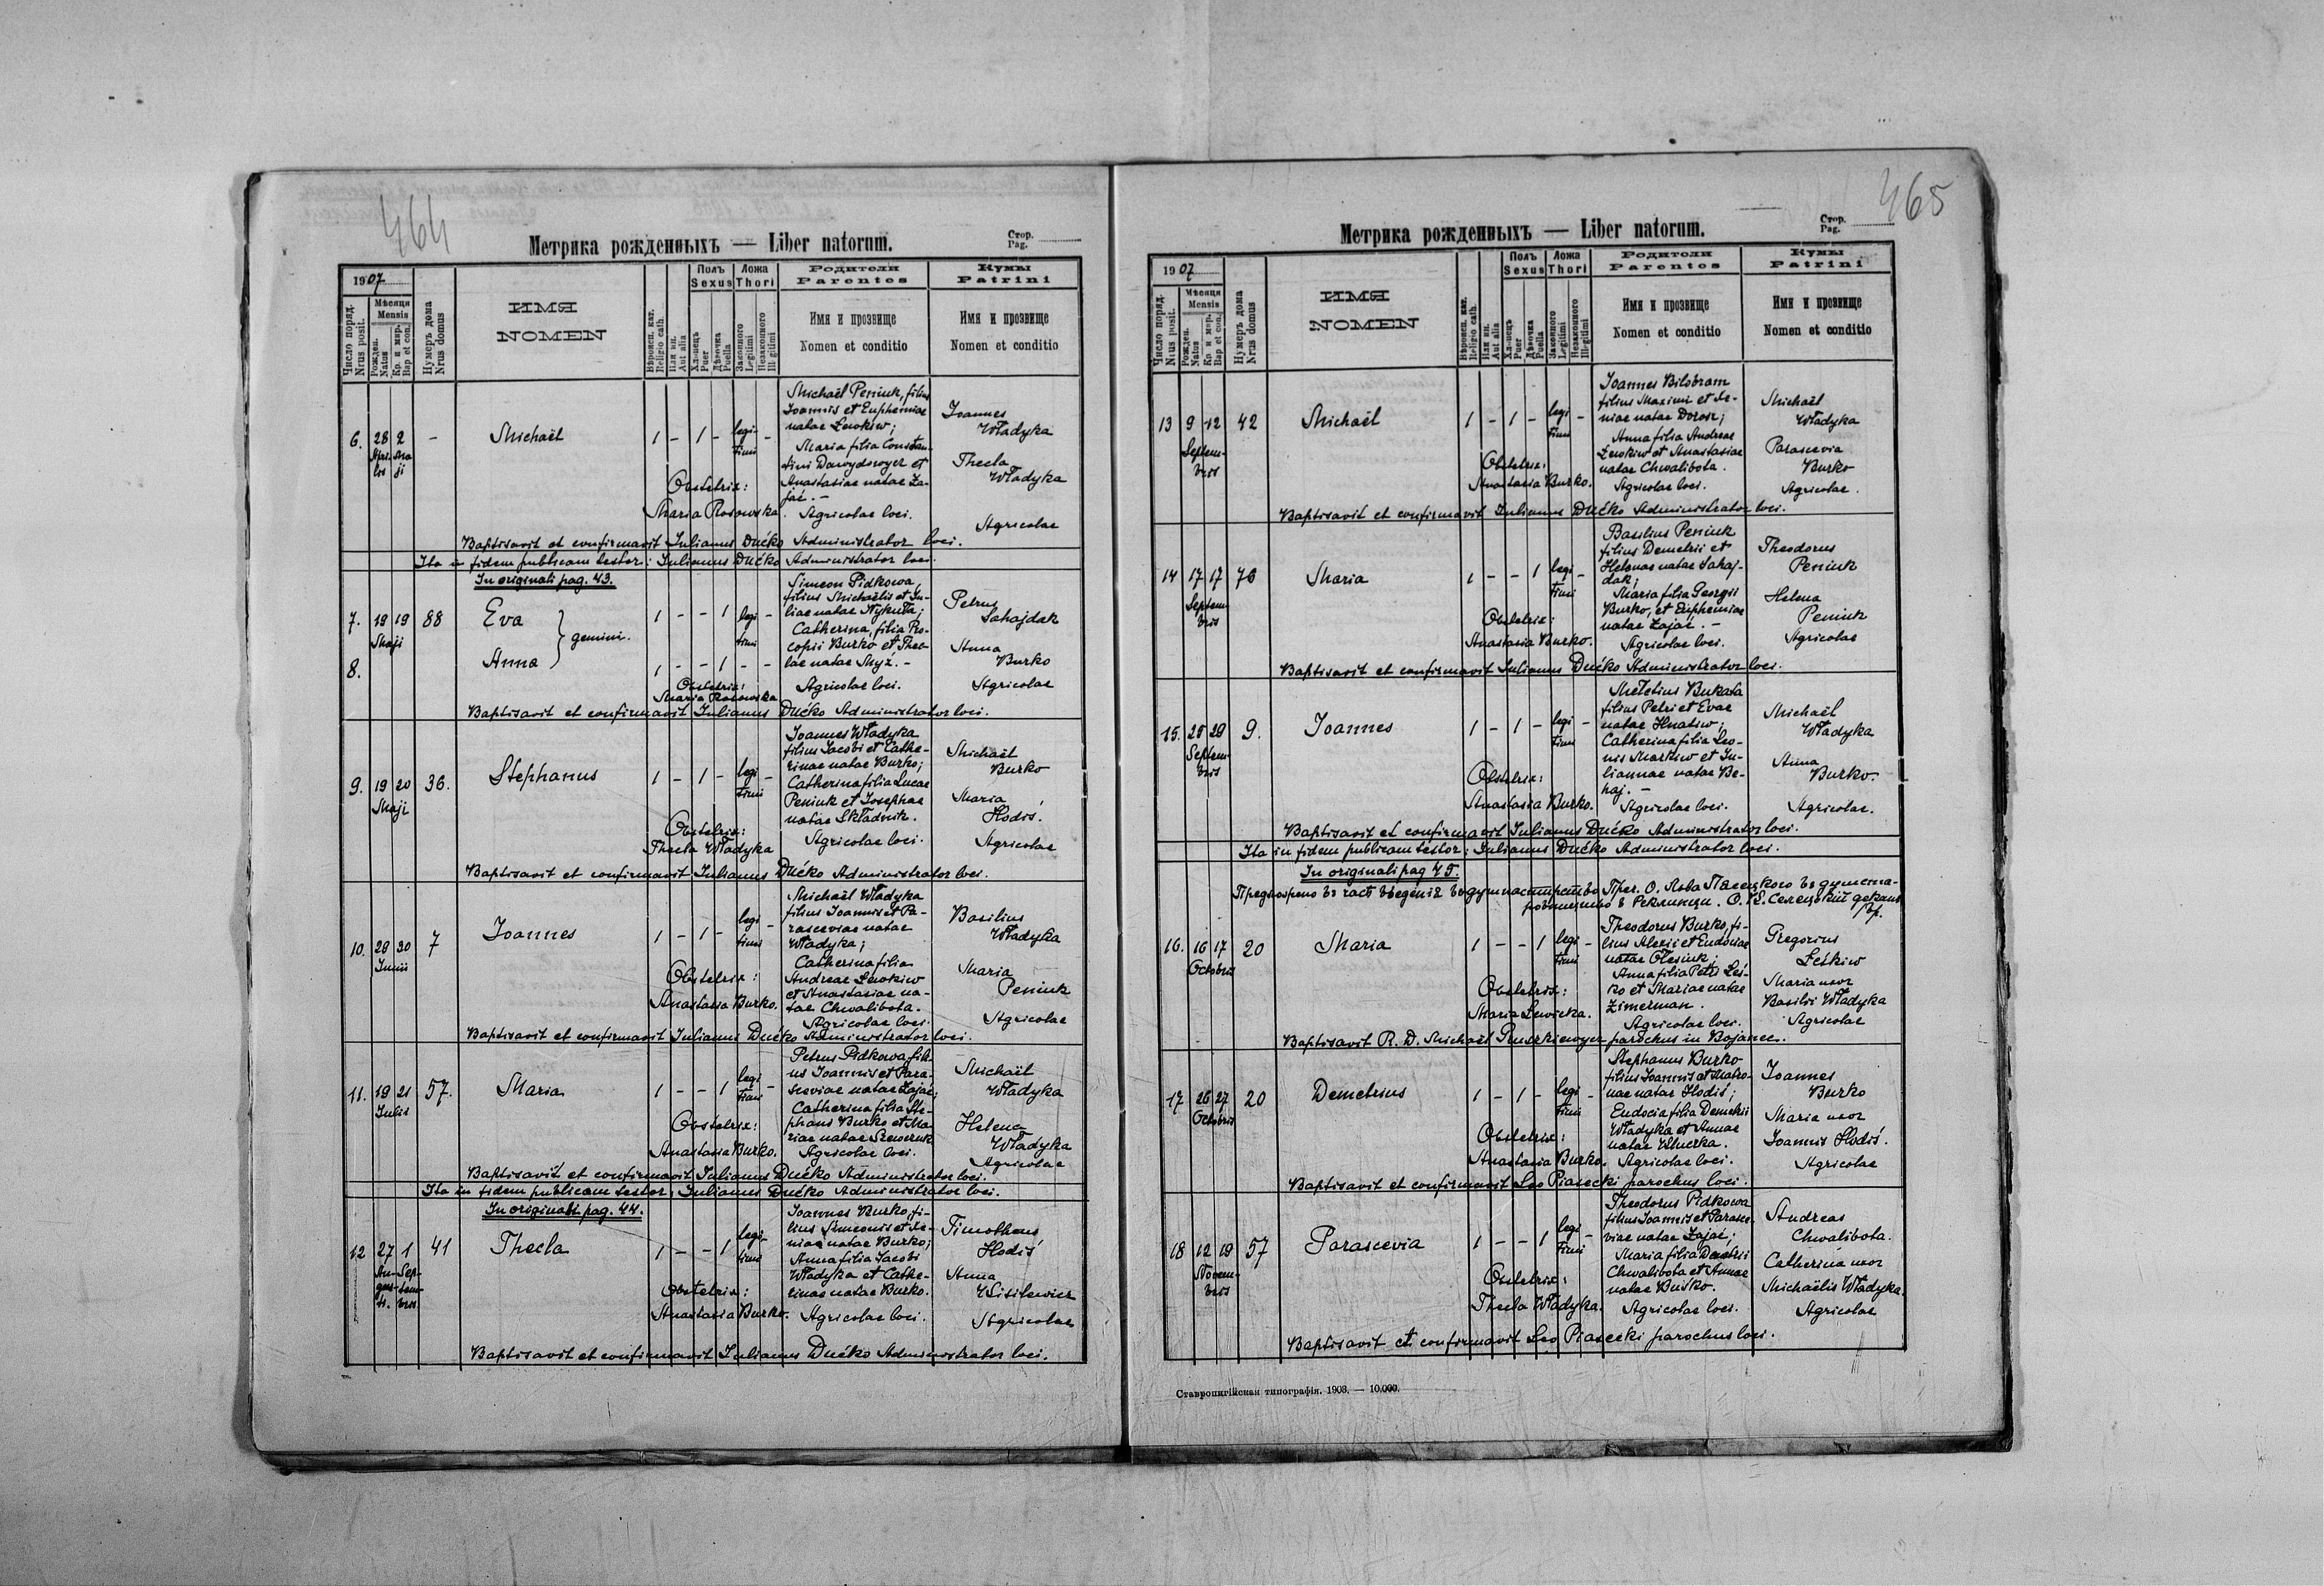 464
Метрика рожденныхъ — Liber natorum.
Стор.
Pag.
1907
Число поряд.
Nrus posit.
Мѣсяця
Mensis
Рожден.
Natus
Кр. и мѵр.
Bap et con.
Нумеръ дома
Nrus domus
ИМЯ
NOMEN
Вѣроисп. кат.
Religio cath.
Или ин.
Aut alia
Полъ
Sexus
Хлопецъ
Puer
Дѣвочка
Puella
Ложа
Thori
Законного
Legitimi
Незаконного
Illigitimi
Родители
Parentes
Имя и прозвище
Nomen et conditio
Кумы
Patrini
Имя и прозвище
Nomen et conditio
6. 28 2 -
Apri- Ma
lis ji
Michaël
1 - 1 - legi- -
timi
Michaël Peniuk, filius
Joannis et Euphemiae
natae Lewkiw;
Maria filia Constan-
tini Dawydowycz et
Anastasiae natae Za-
jać. -
Agricolae loci.
Joannes
Władyka
Thecla
Władyka
Agricolae
Obstetrix:
Maria Rosowska.
Baptisavit et confirmavit Julianus Dućko Administrator loci.
Ita in fidem publicam testor: Julianus Dućko Administrator loci.
In originali pag. 43.
7. 19 19 88
Maji
Eva
gemini.
8.
Anna
1 - - 1 legi -
timi
1 - - 1 - -
Simeon Pidkowa,
filius Michaëlis et Ju-
liae natae Nykuła;
Catherina, filia Pro-
copii Burko et Thec-
lae natae Myź. -
Agricolae loci.
Petrus
Sahajdak
Anna
Burko
Agricolae
Obstetrix:
Maria Rosowska
Baptisavit et confirmavit Julianus Dućko Administrator loci.
9. 19 20 36.
Maji
Stephanus
1 - 1 - legi -
timi
Joannes Władyka
filius Jacobi et Cathe-
rinae natae Burko;
Catherina filia Lucae
Peniuk et Josephae
natae Składnik.
Agricolae loci.
Michaël
Burko
Maria
Hodiś.
Agricolae
Obstetrix:
Thecla Władyka
Baptisavit et confirmavit Julianus Dućko Administrator loci.
10. 29 30 7
Junii
Joannes
1 - 1 - legi -
timi
Michaël Władyka
filius Joannis et Pa-
rasceviae natae
Władyka;
Catherina filia
Andreae Lewkiw
et Anastasiae na-
tae Chwalibota.
Agricolae loci.
Basilius
Władyka
Maria
Peniuk
Agricolae
Obstetrix:
Anastasia Burko.
Baptisavit et confirmavit Julianus Dućko Administrator loci.
11. 19 21 57.
Julii
Maria
1 - - 1 legi -
timi
Petrus Pidkowa fili-
us Joannis et Para-
sceviae natae Zajać;
Catherina filia Ste-
phani Burko et Ma-
riae natae Szewczuk
Agricolae loci.
Michaël
Władyka
Helena
Władyka
Agricolae
Obstetrix:
Anastasia Burko.
Baptisavit et confirmavit Julianus Dućko Administrator loci.
Ita in fidem publicam testor: Julianus Dućko Administrator loci.
In originali pag. 44.
12 27 1 41
Au- Sep-
gus- tem-
ti. bris
Thecla
1 - - 1 legi- -
timi
Joannes Burko, fi-
lius Simeonis et Xe-
niae natae Burko;
Anna filia Jacobi
Władyka et Cathe-
rinae natae Burko.
Agricolae loci.
Timotheus
Hodiś
Anna
Wisilewicz
Agricolae
Obstetrix:
Anastasia Burko.
Baptisavit et confirmavit Julianus Dućko Administrator loci.
465
Метрика рожденныхъ — Liber natorum.
Стор.
Pag.
1907
Число поряд.
Nrus posit.
Мѣсяця
Mensis
Рожден.
Natus
Кр. и мѵр.
Bap et con.
Нумеръ дома
Nrus domus
ИМЯ
NOMEN
Вѣроисп. кат.
Religio cath.
Или ин.
Aut alia
Полъ
Sexus
Хлопецъ
Puer
Дѣвочка
Puella
Ложа
Thori
Законного
Legitimi
Незаконного
Illigitimi
Родители
Parentes
Имя и прозвище
Nomen et conditio
Кумы
Patrini
Имя и прозвище
Nomen et conditio
13 9 12 42
Septem-
bris
Michaël
1 - 1 - legi -
timi
Joannes Bilobram
filius Maximi et Xe-
niae natae Dorosz;
Anna filia Andreae
Lewkiw et Anastasiae
natae Chwalibota.
Agricolae loci.
Michaël
Władyka
Parascevia
Burko
Agricolae.
Obstetrix:
Anastasia Burko.
Baptisavit et confirmavit Julianus Dućko Administrator loci.
14 17 17 76
Septem-
bris
Maria
1 - - 1 legi -
timi
Basilius Peniuk
filius Demetrii et
Helenae natae Sahaj-
dak;
Maria filia Georgii
Burko, et Euphemiae
natae Zajać. -
Agricolae loci.
Theodorus
Peniuk
Helena
Peniuk
Agricolae
Obstetrix:
Anastasia Burko.
Baptisavit et confirmavit Julianus Dućko Administrator loci.
15. 25 29 9.
Septem-
bris
Joannes
1 - 1 - legi -
timi
Meletius Bukata
filius Petri et Evae
natae Hnatiw;
Catherina filia Leo-
nis Markiw et Ju-
liannae natae Be-
haj. -
Agricolae loci.
Michaël
Władyka
Anna
Burko.
Agricolae.
Obstetrix:
Anastasia Burko.
Baptisavit et confirmavit Julianus Dućko Administrator loci.
Ita in fidem publicam testor: Julianus Dućko Administrator loci.
In originali pag 45.
16. 16 17 20
Octobris
Maria
1 - - 1 legi -
timi
Theodorus Burko, fi-
lius Alexii et Eudociae
natae Olesiuk;
Anna filia Petri Leś-
ko et Mariae natae
Zimerman.
Agricolae loci.
Gregorius
Leśkiw
Maria uxor
Basilii Władyka
Agricolae
Obstetrix:
Maria Lewicka.
Baptisavit R. D. Michaël Ruszkiewycz parochus in Bojanec.
17 26 27 20
Octobris
Demetrius
1 - 1 - legi -
timi
Stephanus Burko
filius Joannis et Matro-
nae natae Hodiś;
Eudocia filia Demetrii
Władyka et Annae
natae
Agricolae loci.
Joannes
Burko
Maria uxor
Joannis Hodiś.
Agricolae
Obstetrix:
Anastasia Burko.
Baptisavit et confirmavit Leo Piasecki parochus loci.
18 12 19 57
Novem-
bris
Parascevia
1 - - 1 legi -
timi
Theodorus Pidkowa
filius Joannis et Parasce-
viae natae Zajać;
Maria filia Demetrii
Chwalibota et Annae
natae Burko.
Agricolae loci.
Andreas
Chwalibota.
Catherina uxor
Michaëlis Władyka.
Agricolae
Obstetrix:
Thecla Władyka.
Baptisavit et confirmavit Leo Piasecki parochus loci.
Ставропигійская типографія. 1903. — 10.000.